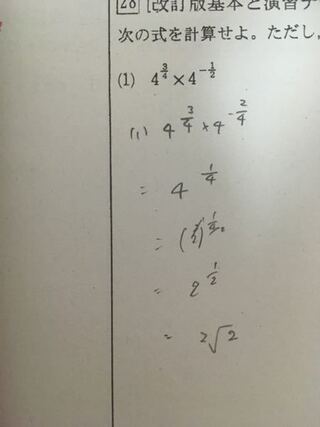 28 [改訂版基本と演習テ
次の式を計算せよ。ただし,
(1) 4^{3/4} × 4^{-1/2}
(1) 4^{3/4} × 4^{-2/4}
= 4^{1/4}
= 2^{1/2}
= 2√2